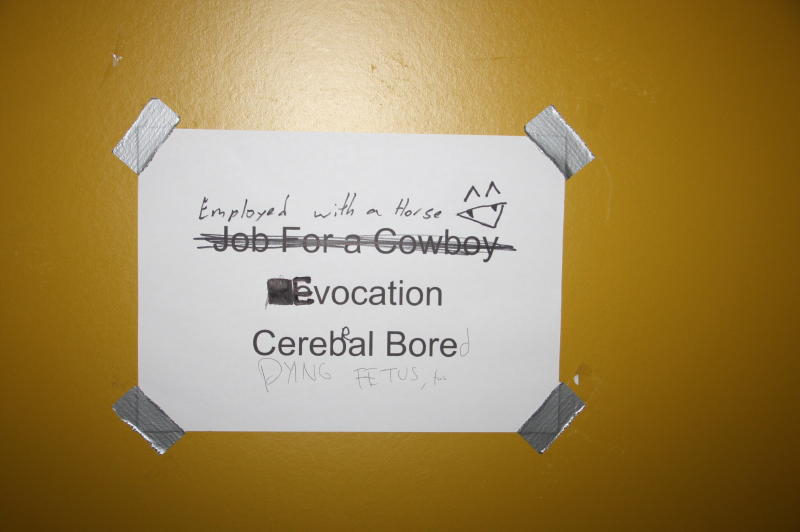 Employed with a Horse
Job For a Cowboy
Evocation
Cerebral Bored
DYING FETUS, too